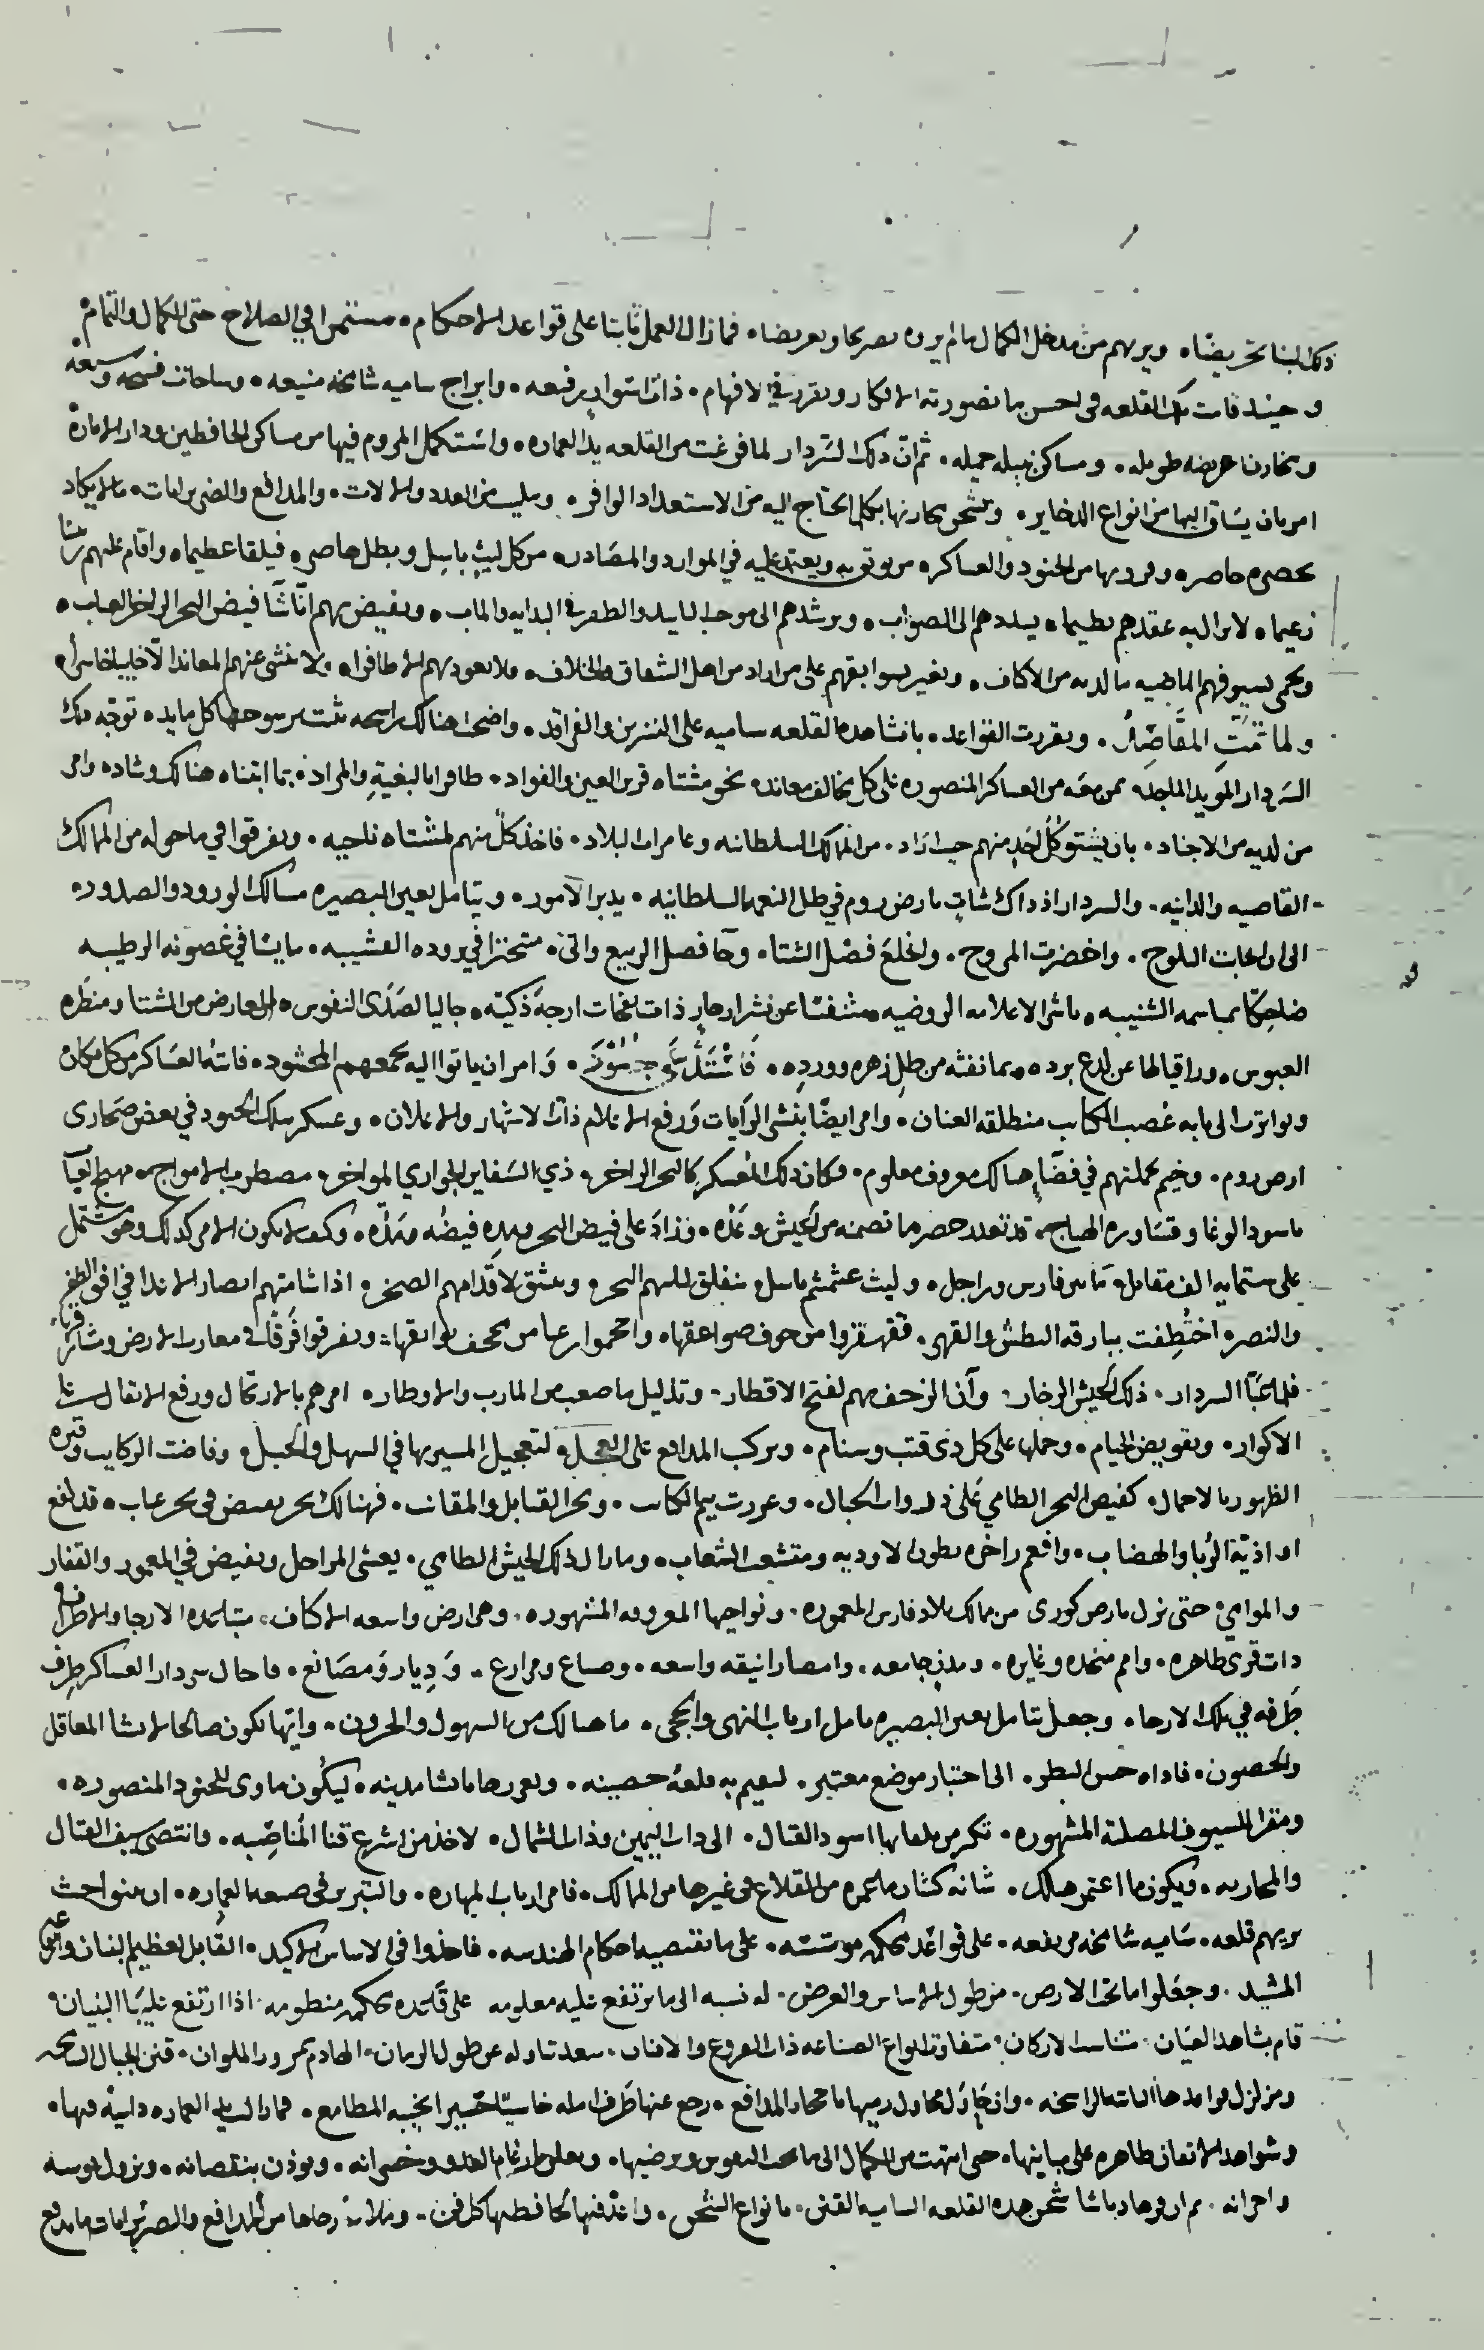 ذلك البنا تحريضا، ويريهم من مدخل الكمال ما لم يروه تصريحا وتعريضا، فما زال العمل ثابتا على قواعد الاحكام، مستمرا في الصلاح حتى الكمال والتمام
وحينيد قامت تلك القلعه في احسن ما تصورته الافكار وتقرر في الافهام، ذات اسوار رفيعه، وابراج ساميه شامخه منيعه، وساحات فسيحه وسيعه
ومخازن عريضه طويله، ومساكن نبيله جميله، ثم ان ذلك السردار لما فرغت من القلعه يد العماره، واستكمل المروم فيها من مساكن الحافظين ودار الاماره
امر بان يساق اليها من انواع الدخاير، وتشحن مخازنها بكل ما يحتاج اليه من الاستعداد الوافر، ومليت من العدد والالات، والمدافع والضربزانات، ما لا يكاد
يحصره حاصر، وفرد بها من الجنود والعساكر، من يوثق به ويعتمد عليه في الموارد والمصادر، من كل ليث باسل وبطل هاصر، فيلقا عظيما، واقام عليهم
زعيما، لا يزال به عقدهم نظيما، يسددهم الى الصواب، ويرشدهم الى موجب التاييد والظفر في البدايه والماب، ويفيض بهم انى شا فيض البحر الزاخر العباب،
ويحمي بسيوفهم الماضيه ما لديه من الاكناف، ويغير بسوابقهم على من اراد من اهل الشقاق والخلاف، فلا يعود بهم الا ظافرا، ولا ينثني عنهم المعاند الا خايبا خاسرا،
ولما تمت المقاصد، وتقررت القواعد، بانشا هذه القلعه ساميه على النسرين والفراقد، واضحت هنالك راسخه تثبت برسوخها كل مايده، توجه ذلك
السردار المويد الملجد، بمن معه من العساكر المنصوره على كل مخالف معاند، نحو مشتاه قرير العين والفواد، ظافرا بالبغية والمراد، بما ابتناه هنالك وشاد، وامر
من لديه من الاجناد، بان يشتو كل احد منهم حيث اراد، من الممالك السلطانيه وعامرات البلاد، فاخذ كل منهم لمشتاه ناحيه، وتفرقوا في ما حوله من الممالك
القاصيه والدانيه، والسردار اذ ذاك شات بارض روم في ظل النعمه السلطانيه، يدبر الامور، ويتامل بعين البصيره مسالك الورود والصدور،
الى ان ذابت الثلوج، واخضرت المروج، وانخلع فصل الشتا، وجا فصل الربيع واتى، متبخترا في بروده القشيبه، مايسا في غصونه الرطيبه
ضاحكا بمباسمه الشنيبه، ناشرا لاعلامه الروضيه، متنفسا عن نشر ازهار ذات نفحات ارجة ذكيه، جاليا لصدى النفوس، العارض من الشتا ومنظره
العبوس، وراقيا لها عن لدع برده، بما نفثه من طل زهره وورده، فاستدعى جنوده، وامر ان ياتوا اليه بجمعهم المحشود، فاتته العساكر من كل مكان
وتواترت الى بابه عصب الكتايب منطلقة العنان، وامر ايضا بنشر الرايات ورفع الاعلام ذات الاشتهار والاعلان، وعسكر بتلك الجنود في بعض صحارى
ارض روم، وخيم بجملتهم في فضاء هنالك معروف معلوم، فكان ذلك المعسكر كالبحر الزاخر، ذي السفاين الجواري المواخر، مضطربا بالامواج،
باسود الوغا وقساورة الهياج، قد تعدد حصر ما تضمنه من الجيش وعده، فزاد على فيض البحر ومده فيضه ومده، وكيف لا يكون الامر كذلك وهو مشتمل
على ستمايه الف مقاتل، ما بين فارس وراجل، وليث عشمشم باسل، ينفلق لباسهم البحر، وينشق لاقدامهم الصخر، اذا شامتهم ابصار الاعدا في افق الظفر
والنصره اختطفت ببارقة البطش والقهر، فتقهقروا من خوف صواعقها، واحجموا رعبا من بوايقها، وتفرقوا فرقا في مغارب الارض ومشارقها،
فلما عبا السردار، ذلك الجيش الزخار، وآن الزحف بهم لفتح الاقطار، وتذليل ما صعب من المارب والاوطار، امرهم بالارتحال ورفع الاثقال
الاكوار، وتقويض الخيام، وحملها على كل ذى قتب وسنام، وبركب المدافع على العجل، لتعجيل المسير بها في السهل والجبل، وفاضت الركايب
الظهور بالاحمال، كفيض البحر الطامي على ذروات الجبال، فهنالك بحر يفيض في بحر عباب، قد دفع
اواذيه الربا والهضاب، وافعم زاخره بطون الاوديه ومتشعب الشعاب، وما زال ذلك الجيش الطامي، يغشى المراحل ويفيض في المعمور والقفار
والموامي، حتى نزل بارض كورى من ممالك بلاد فارس المعموره، ونواحيها المعروفه المشهوره، وهى ارض واسعه الاكناف، متباعدة الارجا والاطراف
ذات قرى ظاهره، وامم منجده وغايره، ومدن جامعه، وامصار انيقه واسعه، وضياع ومزارع، وديار ومصانع، فاحال سردار العساكر طرف
طرفه في تلك الارجا، وجعل يتامل بعين البصيره تامل ارباب النهى والحجى، ما هنالك من السهول والحزون، وايها يكون صالحا لانشا المعاقل
والحصون، فاداه حسن النظر، الى اختيار موضع معتبر، ليقيم به قلعة حصينه، ويعززها بانشا مدينه، ليكون ماوى للجنود المنصوره،
ومقرا للسيوف المصلتة المشهوره، تكر من تلقايها اسود القتال، الى ذات اليمين وذات الشمال، لاخذ من اشرع قنا المناصبه، وانتضى سيف القتال
والمحاربه، ويكون ما اعتمر هنالك، شانه كشان ما عمره من القلاع في غيرها من الممالك، فامر ارباب المهاره، والتبريز في صنعة العماره، ان يبنوا حيث
يريهم قلعه، ساميه شامخه مرتفعه، على قواعد محكمه موسسه، على ما تقتضيه احكام الهندسه، فاخذوا في الاساس الاكيد، القابل لعظيم البنيان
المشيد، وجعلوا ما تحت الارض، من طول الاساس والعرض، له نسبه الى ما يرتفع عليه معلومه على قاعده محكمه منظومه، اذا ارتفع عليها البنيان،
قام بشاهد العيان، متناسب الاركان، متفاوت انواع الصناعه ذات الفروع والافنان، يبعد تناوله عن طول الزمان، الهادم بمرور الملوان، قنن الجبال الشامخه
ومزلزل قواعدها الثابته الراسخه، وان حاول محاول رميها باحجار المدافع، رجع عنها طرف امله خاسيا حسيرا بخيبه المطامع، فما زالت يد العماره دايبة فيها،
وشواهد الاتقان ظاهره على مبانيها، حتى انتهت من الكمال الى ما تحب النفوس ويرضيها، ويعلن بارغام العدو وخسرانه، ويوذن بنقصانه، ونزول بوسه
واحزانه، ثم ان فرهاد باشا شحن هذه القلعه الساميه القنن، بانواع الشحن، واعد فيها لحافظيها كل فن، وملا ارجاها من المدافع والضربزانات ما يدفع